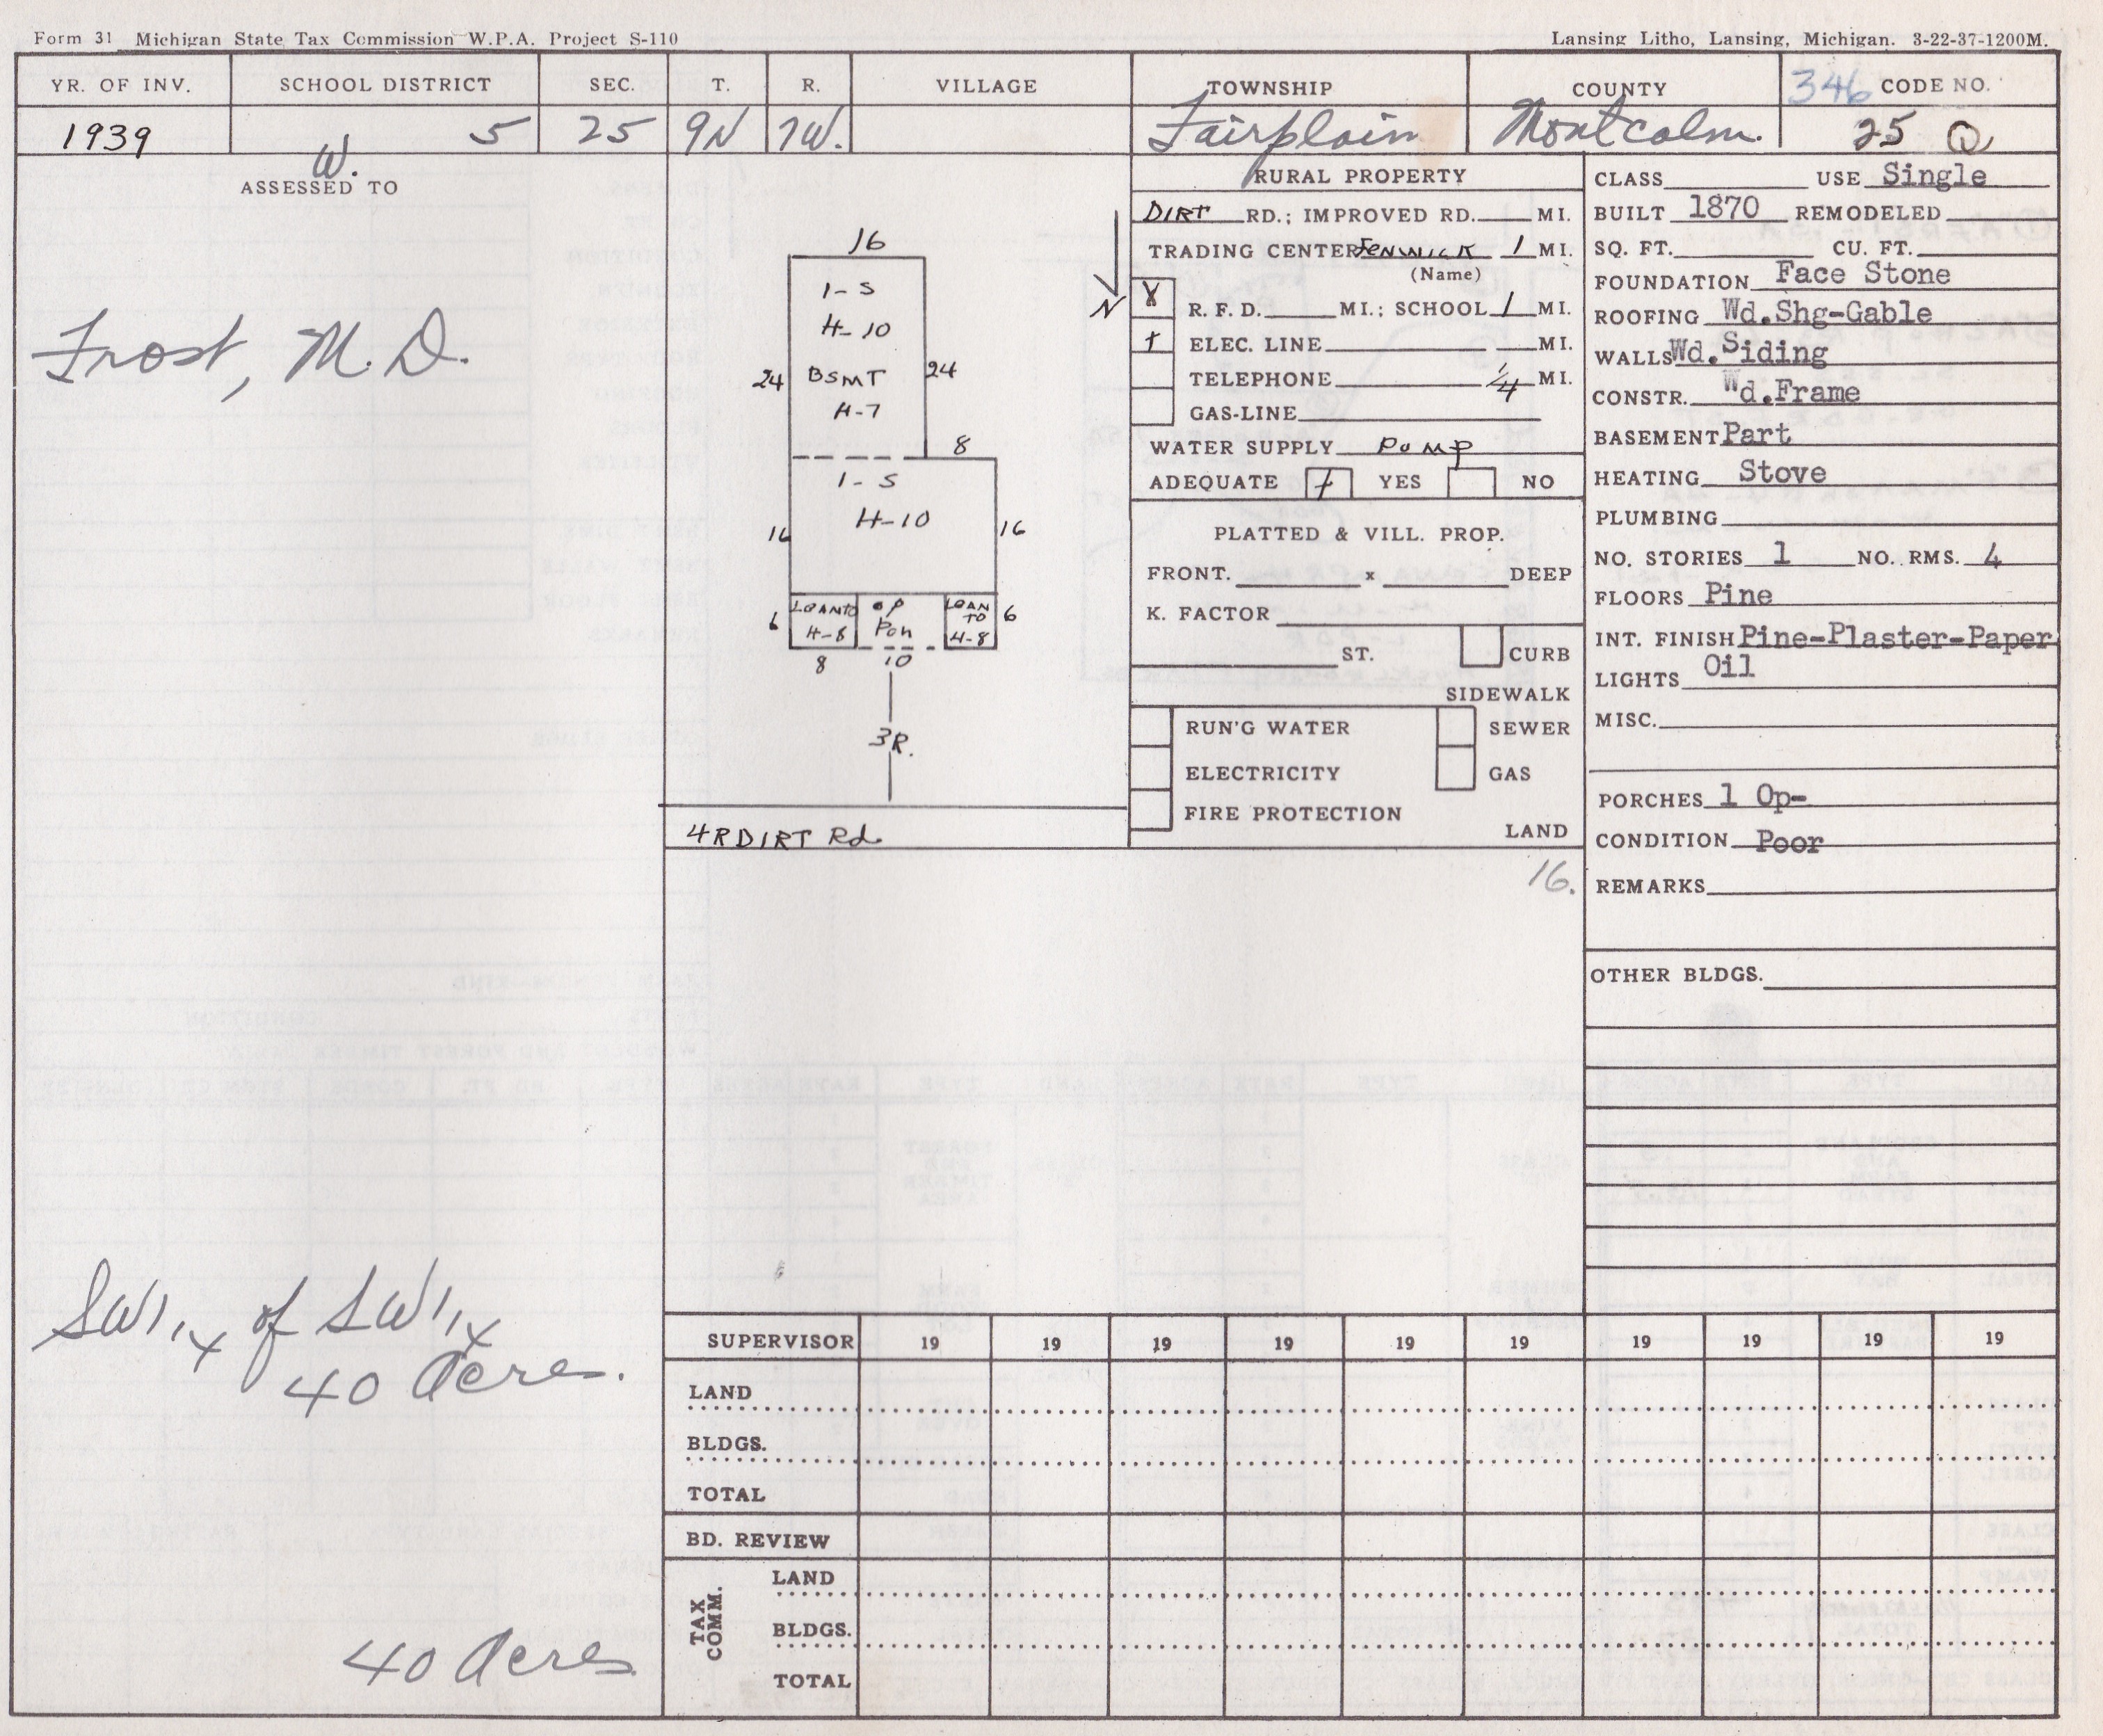 Form 31 Michigan State Tax Commission W.P.A. Project S-110
Lansing Litho, Lansing, Michigan. 3-22-37-1200M.
YR. OF INV. SCHOOL DISTRICT SEC. T. R. VILLAGE TOWNSHIP COUNTY 346 CODE NO.
1939 5 25 9N 7W. Fairplain Montcalm. 25 Q
W.
ASSESSED TO
Frost, M.D.
SW1/4 of SW1/4
40 acres.
40 acres
16
1-S
H-10
24 BSMT 24
H-7
8
1-S
H-10
16 16
6 LOANTO OP LOAN TO 6
H-8 Poh H-8
8 10
3R.
4R DIRT Rd.
N
RURAL PROPERTY
DIRT RD.; IMPROVED RD. MI.
TRADING CENTER Fenwick 1 MI.
(Name)
X R. F. D. MI.; SCHOOL 1 MI.
† ELEC. LINE MI.
TELEPHONE 1/4 MI.
GAS-LINE
WATER SUPPLY Pump
ADEQUATE / YES NO
PLATTED & VILL. PROP.
FRONT. x DEEP
K. FACTOR
ST. CURB
SIDEWALK
RUN'G WATER SEWER
ELECTRICITY GAS
FIRE PROTECTION
LAND
16.
CLASS USE Single
BUILT 1870 REMODELED
SQ. FT. CU. FT.
FOUNDATION Face Stone
ROOFING Wd.Shg-Gable
WALLS Wd.Siding
CONSTR. Wd.Frame
BASEMENT Part
HEATING Stove
PLUMBING
NO. STORIES 1 NO. RMS. 4
FLOORS Pine
INT. FINISH Pine-Plaster-Paper
LIGHTS Oil
MISC.
PORCHES 1 Op-
CONDITION Poor
REMARKS
OTHER BLDGS.
SUPERVISOR 19 19 19 19 19 19 19 19 19 19
LAND
BLDGS.
TOTAL
BD. REVIEW
TAX COMM.
LAND
BLDGS.
TOTAL